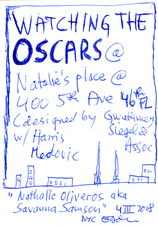 WATCHING THE
OSCARS @
Natalie's place @
400 5th Ave 46th FL
(designed by Gwathmey
Siegel &
w/ Harris Assoc
Medovic
"Nathalie Oliveros aka
Savanna Samson" 4 III 2018
NYC